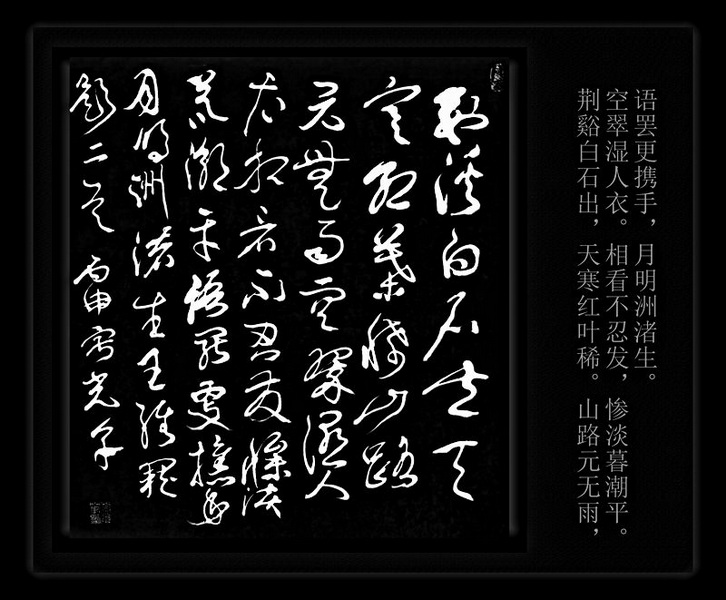 荆溪白石出天
寒紅葉稀山路
元無雨空翠濕人
衣相看不忍發惨淡
暮潮平語罷更携手
月明洲渚生王維
二首 丙申
荆谿白石出，天寒红叶稀。山路元无雨，
空翠湿人衣。相看不忍发，惨淡暮潮平。
语罢更携手，月明洲渚生。